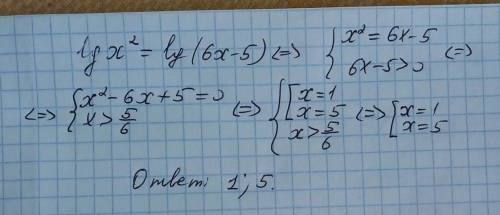 lg x² = lg(6x-5) <=> { x² = 6x-5; 6x-5>0 <=>
<=> { x²-6x+5=0; x > 5/6 <=> { [ x=1; x=5; x > 5/6 <=> [ x=1; x=5
Ответ: 1; 5.